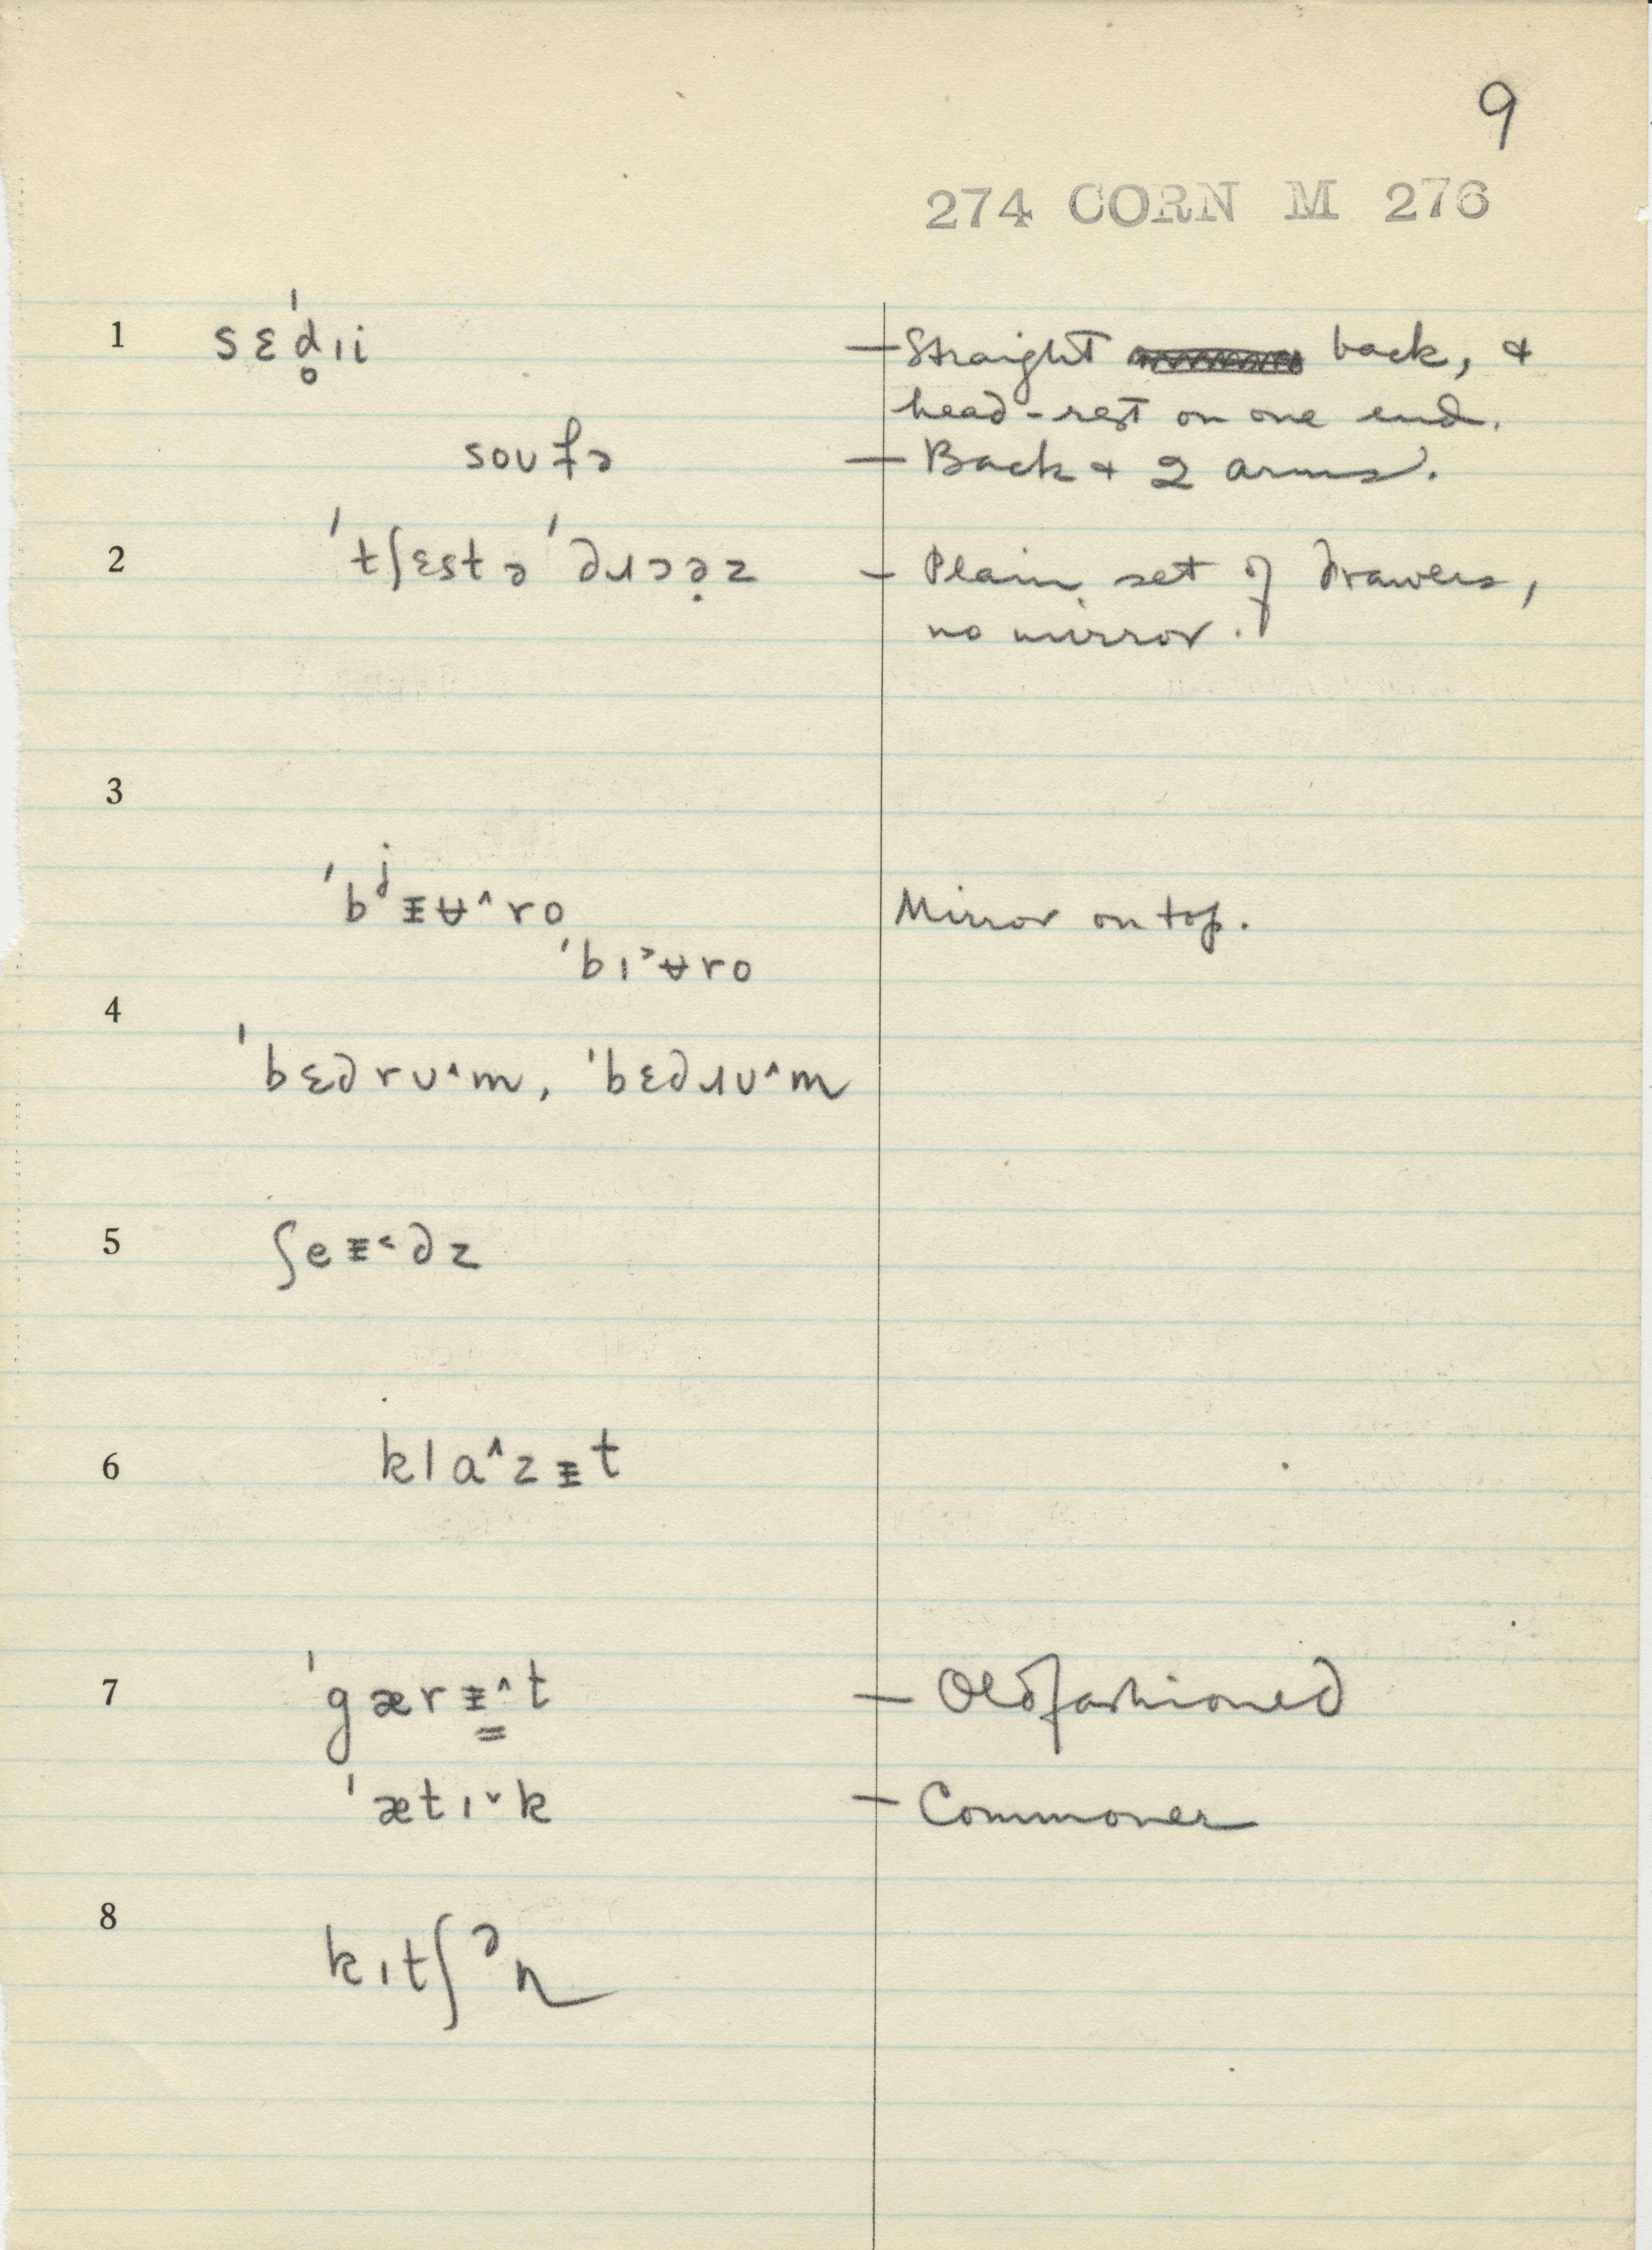 9
274 CORN M 276
1 sɛˈd̥ɪi — Straight back, &
head-rest on one end.
soʊfə — Back & 2 arms.
2 ˈtʃɛstə ˈdɹɔə̣z — Plain set of drawers,
no mirror.
3
ˈbʲᵻʉ^ro Mirror on top.
ˈbɪ˃ʉro
4
ˈbɛdrʊ^m, ˈbɛdɹʊ^m
5 ʃeᵻ˂dz
6 kla^zᵻt
7 ˈgærᵻ̳^t — Oldfashioned
ˈætɪˇk — Commoner
8
kɪtʃᵊn